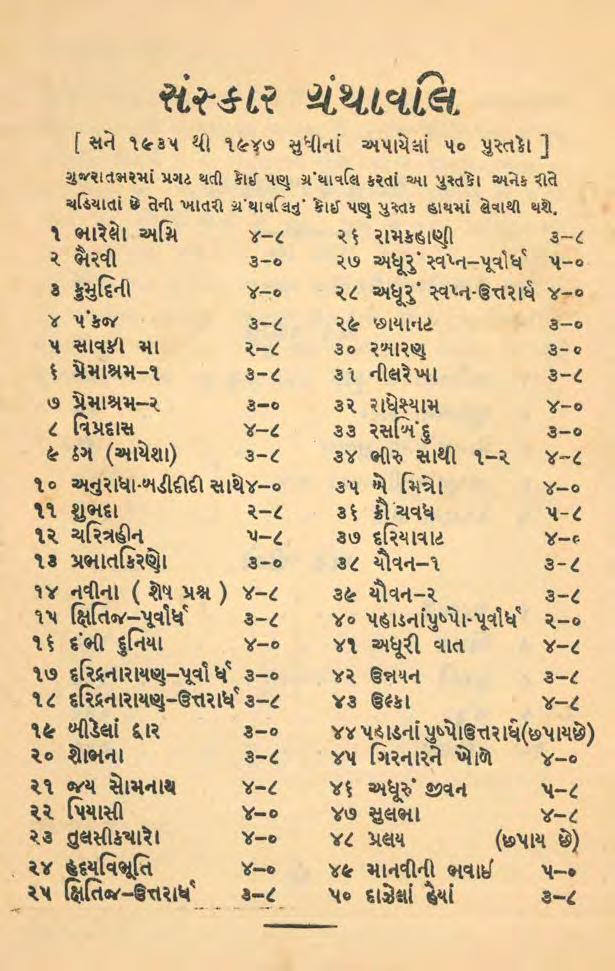 સંસ્કાર ગ્રંથાવલિ
[ સને ૧૯૩૫ થી ૧૯૪૭ સુધીનાં અપાયેલાં ૫૦ પુસ્તકો ]
ગુજરાતભરમાં પ્રગટ થતી કોઈ પણ ગ્રંથાવલિ કરતાં આ પુસ્તકો અનેક રીતે
ચડિયાતાં છે તેની ખાતરી ગ્રંથાવલિનું કોઈ પણ પુસ્તક હાથમાં લેવાથી થશે.
૧ ભારેલો અગ્નિ ૪-૮
૨ ભૈરવી ૩-૦
૩ કુમુદિની ૪-૦
૪ પંકજ ૩-૮
૫ સાવકી મા ૨-૮
૬ પ્રેમાશ્રમ-૧ ૩-૮
૭ પ્રેમાશ્રમ-૨ ૩-૦
૮ વિપ્રદાસ ૪-૮
૯ ઠગ (આયેશા) ૩-૮
૧૦ અનુરાધા-બડીદીદી સાથે ૪-૦
૧૧ શુભદા ૨-૮
૧૨ ચરિત્રહીન ૫-૮
૧૩ પ્રભાતકિરણો ૩-૦
૧૪ નવીના ( શેષ પ્રશ્ન ) ૪-૮
૧૫ ક્ષિતિજ-પૂર્વાર્ધ ૩-૮
૧૬ દંભી દુનિયા ૪-૦
૧૭ દરિદ્રનારાયણ-પૂર્વાર્ધ ૩-૦
૧૮ દરિદ્રનારાયણ-ઉત્તરાર્ધ ૩-૮
૧૯ બીડેલાં દ્વાર ૩-૦
૨૦ શોભના ૩-૮
૨૧ જય સોમનાથ ૪-૮
૨૨ પિયાસી ૪-૦
૨૩ તુલસીક્યારો ૪-૦
૨૪ હૃદયવિભૂતિ ૪-૦
૨૫ ક્ષિતિજ-ઉત્તરાર્ધ ૩-૮
૨૬ રામકહાણી ૩-૮
૨૭ અધૂરું સ્વપ્ન-પૂર્વાર્ધ ૫-૦
૨૮ અધૂરું સ્વપ્ન-ઉત્તરાર્ધ ૪-૦
૨૯ છાયાનટ ૩-૦
૩૦ રખારણ ૩-૦
૩૧ નીલરેખા ૩-૮
૩૨ રાધેશ્યામ ૪-૦
૩૩ રસબિંદુ ૩-૦
૩૪ ભીરુ સાથી ૧-૨ ૪-૮
૩૫ બે મિત્રો ૪-૦
૩૬ ક્રૌંચવધ ૫-૮
૩૭ દરિયાવાટ ૪-૦
૩૮ યૌવન-૧ ૩-૮
૩૯ યૌવન-૨ ૩-૮
૪૦ પહાડનાંપુષ્પો-પૂર્વાર્ધ ૨-૦
૪૧ અધૂરી વાત ૪-૮
૪૨ ઉન્નયન ૩-૮
૪૩ ઉલ્કા ૪-૮
૪૪ પહાડનાં પુષ્પોઉત્તરાર્ધ(છપાયછે)
૪૫ ગિરનારને ખોળે ૪-૦
૪૬ અધૂરું જીવન ૫-૮
૪૭ સુલભા ૪-૮
૪૮ પ્રલય (છપાય છે)
૪૯ માનવીની ભવાઈ ૫-૦
૫૦ દાઝેલાં હૈયાં ૩-૮